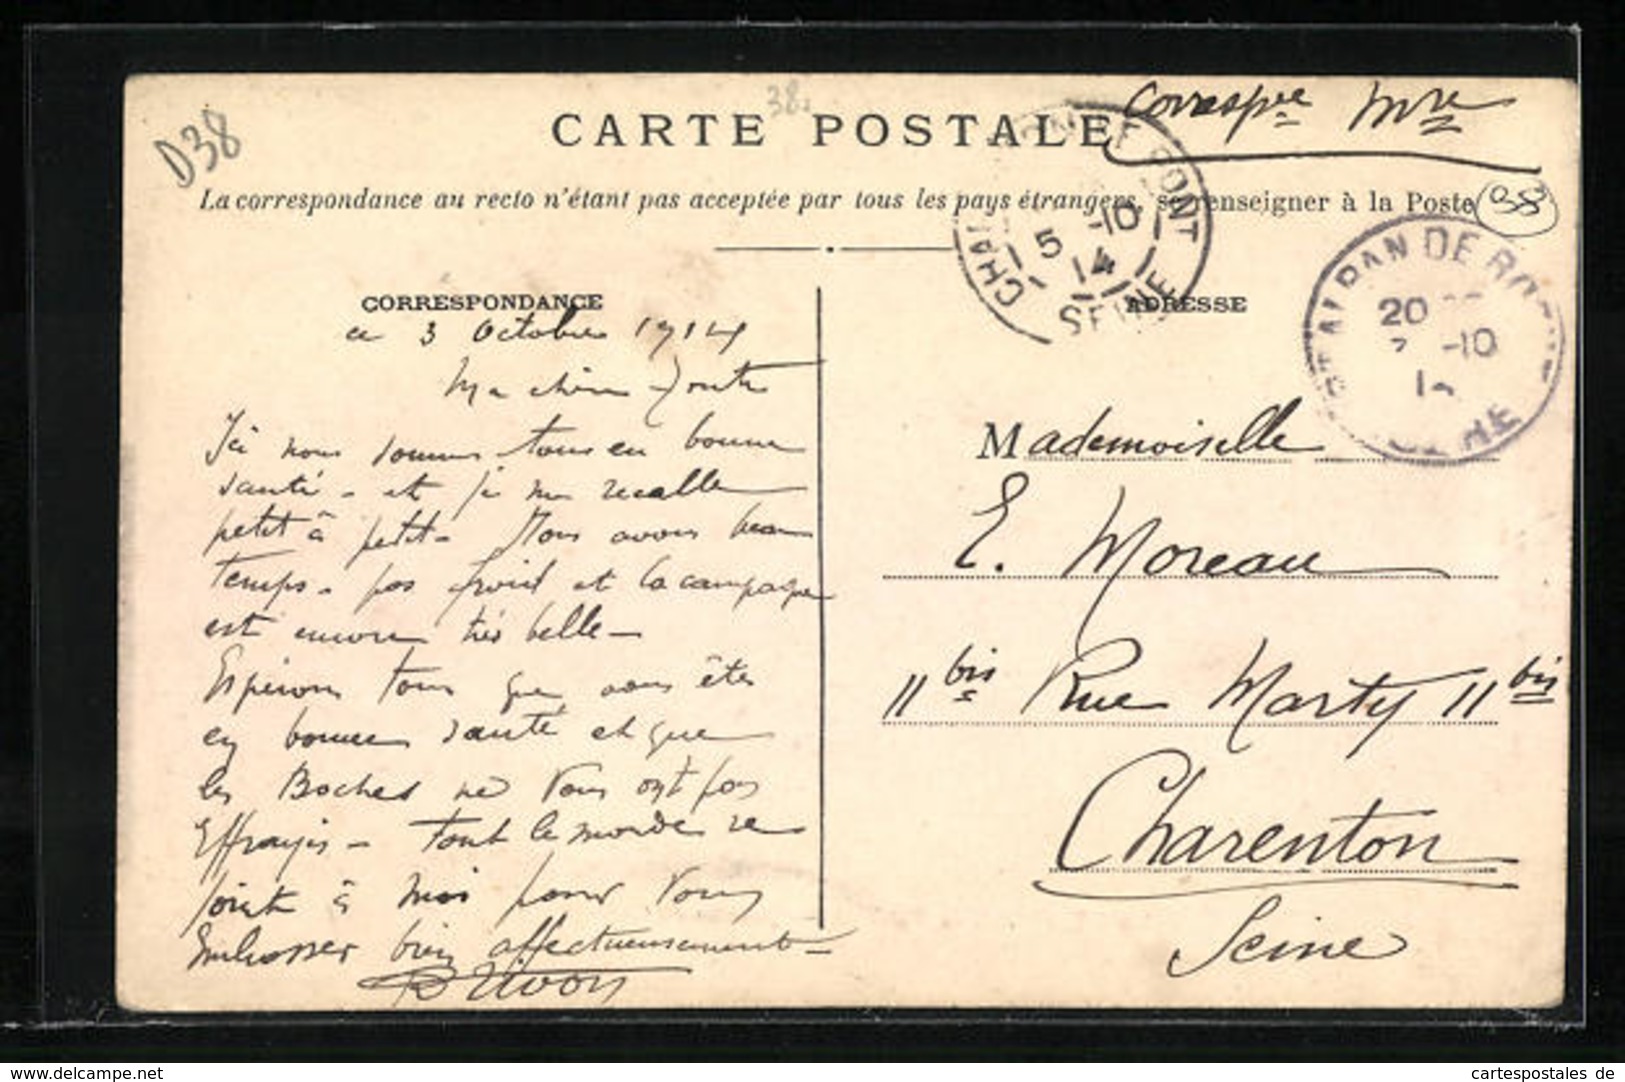 D38
38
CARTE POSTALE
Correspce Mre
La correspondance au recto n'étant pas acceptée par tous les pays étrangers, se renseigner à la Poste
38
CHARENTON LE PONT
5 -10
14
SEINE
ST ALBAN DE RO
20
-10
CORRESPONDANCE
ADRESSE
ce 3 Octobre 1914
Ma chère
Ici nous sommes tous en bonne
santé - et je me recalle
petit à petit - Nous avons beau
temps - pas froid et la campagne
est encore très belle -
Espérons tous que vous êtes
en bonne santé et que
les Boches ne vous ont pas
Effrayés - tout le monde se
joint à moi pour vous
Embrasser bien affectueusement -
Mademoiselle
E. Moreau
11 bis Rue Marty 11 bis
Charenton
Seine
www.delcampe.net
cartespostales de